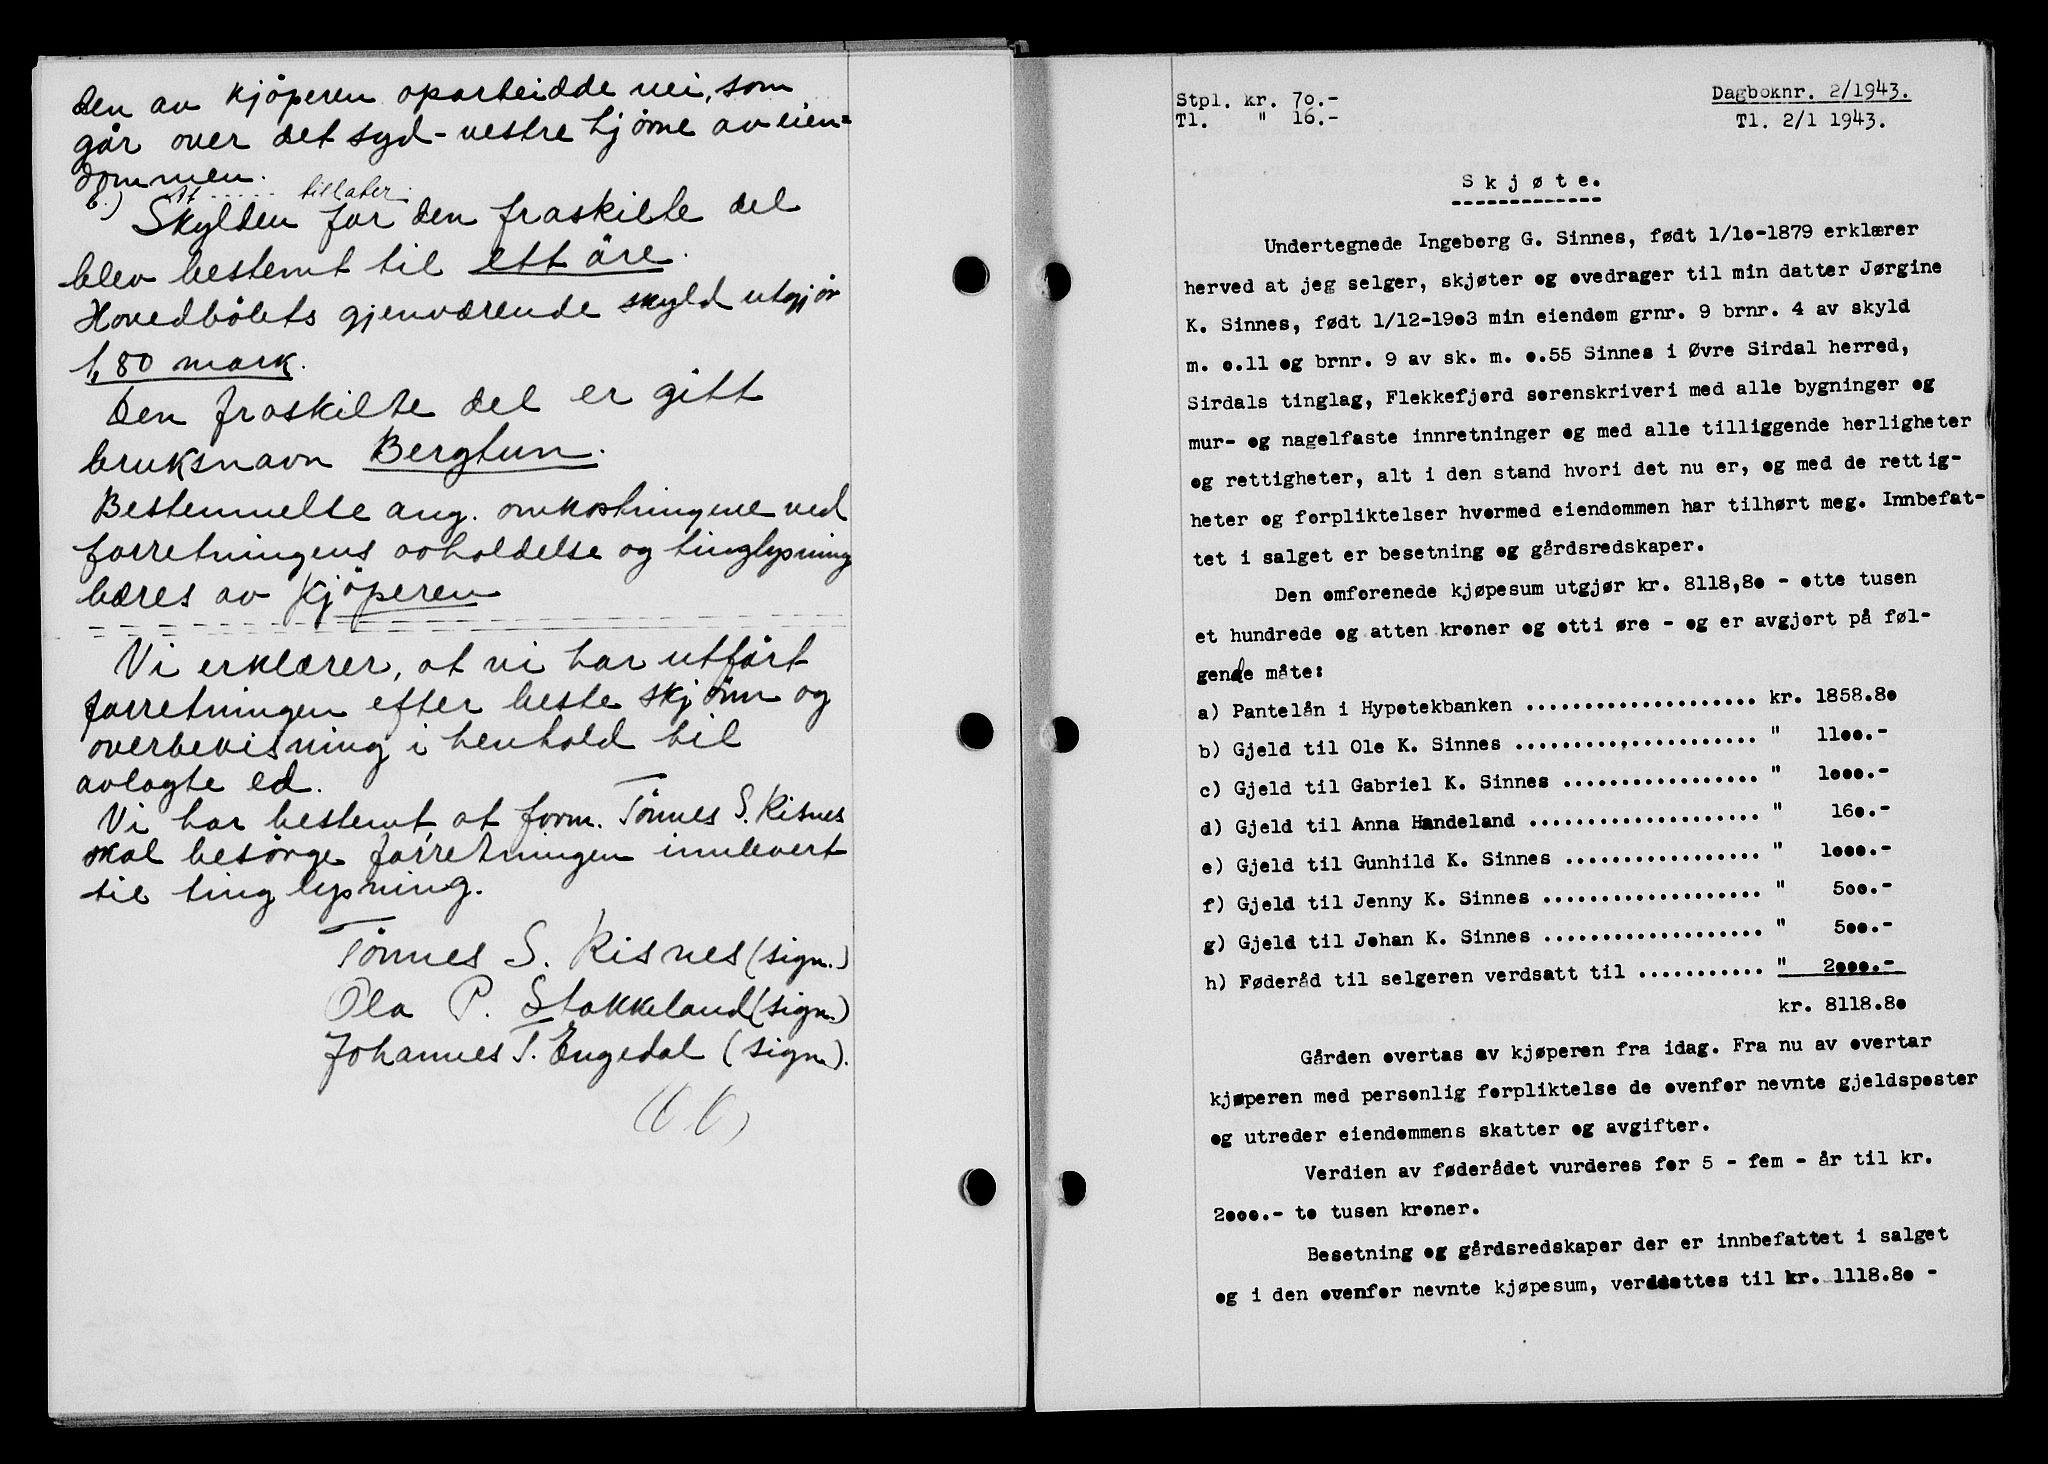 den av kjöperen oparbeidde vei, som
går over det syd-vestre hjörne av eien=
dommen.
b.) At ...... tillater.
Skylden for den fraskilte del
blev bestemt til ett öre.
Hovedbölets gjenværende skyld utgjör
1,80 mark.
Den fraskilte del er gitt
bruksnavn Bergtun.
Bestemmelse ang. omkostningene ved
forretningens avholdelse og tinglysning
bæres av kjöperen
Vi erklærer, at vi har utfört
forretningen efter beste skjönn og
overbevisning i henhold til
avlagte ed.
Vi har bestemt, at form. Tönnes S. Risnes
skal besörge forretningen innlevert
til tinglysning.
Tönnes S. Risnes (sign.)
Ola P. Stakkeland (sign.)
Johannes T. Engedal (sign.).
Stpl. kr. 70.-
Tl. " 16.-
Dagboknr. 2/1943.
Tl. 2/1 1943.
Skjøte.
Undertegnede Ingeborg G. Sinnes, født 1/10-1879 erklærer
herved at jeg selger, skjøter og ovedrager til min datter Jørgine
K. Sinnes, født 1/12-1903 min eiendom grnr. 9 brnr. 4 av skyld
m. 0.11 og brnr. 9 av sk. m. 0.55 Sinnes i Øvre Sirdal herred,
Sirdals tinglag, Flekkefjord sorenskriveri med alle bygninger og
mur- og nagelfaste innretninger og med alle tilliggende herligheter
og rettigheter, alt i den stand hvori det nu er, og med de rettig-
heter og forpliktelser hvormed eiendommen har tilhørt meg. Innbefat-
tet i salget er besetning og gårdsredskaper.
Den omforenede kjøpesum utgjør kr. 8118,80 - otte tusen
et hundrede og atten kroner og otti øre - og er avgjort på føl-
gende måte:
a) Pantelån i Hypotekbanken .................... kr. 1858.80
b) Gjeld til Ole K. Sinnes ..................... " 1100.-
c) Gjeld til Gabriel K. Sinnes ................. " 1000.-
d) Gjeld til Anna Handeland .................... " 160.-
e) Gjeld til Gunhild K. Sinnes ................. " 1000.-
f) Gjeld til Jenny K. Sinnes ................... " 500.-
g) Gjeld til Johan K. Sinnes ................... " 500.-
h) Føderåd til selgeren verdsatt til ........... " 2000.-
kr. 8118.80
Gården overtas av kjøperen fra idag. Fra nu av overtar
kjøperen med personlig forpliktelse de ovenfor nevnte gjeldsposter
og utreder eiendommens skatter og avgifter.
Verdien av føderådet vurderes for 5 - fem - år til kr.
2000.- to tusen kroner.
Besetning og gårdsredskaper der er innbefattet i salget
og i den ovenfor nevnte kjøpesum, verdsattes til kr. 1118.80 -